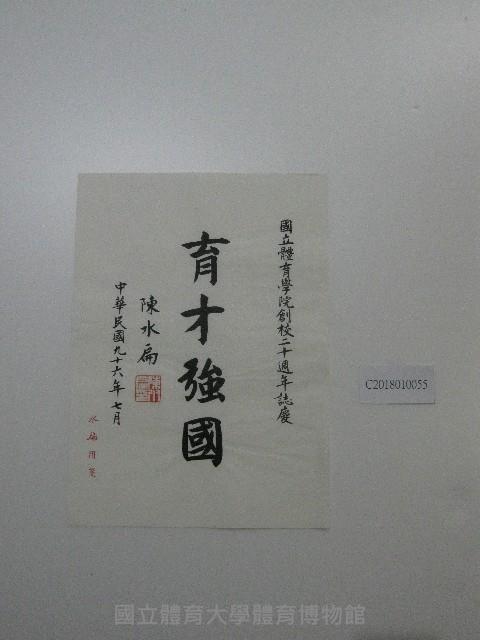 國立體育學院創校二十週年誌慶
育才強國
陳水扁
中華民國九十六年七月
水扁用箋
C2018010055
國立體育大學體育博物館